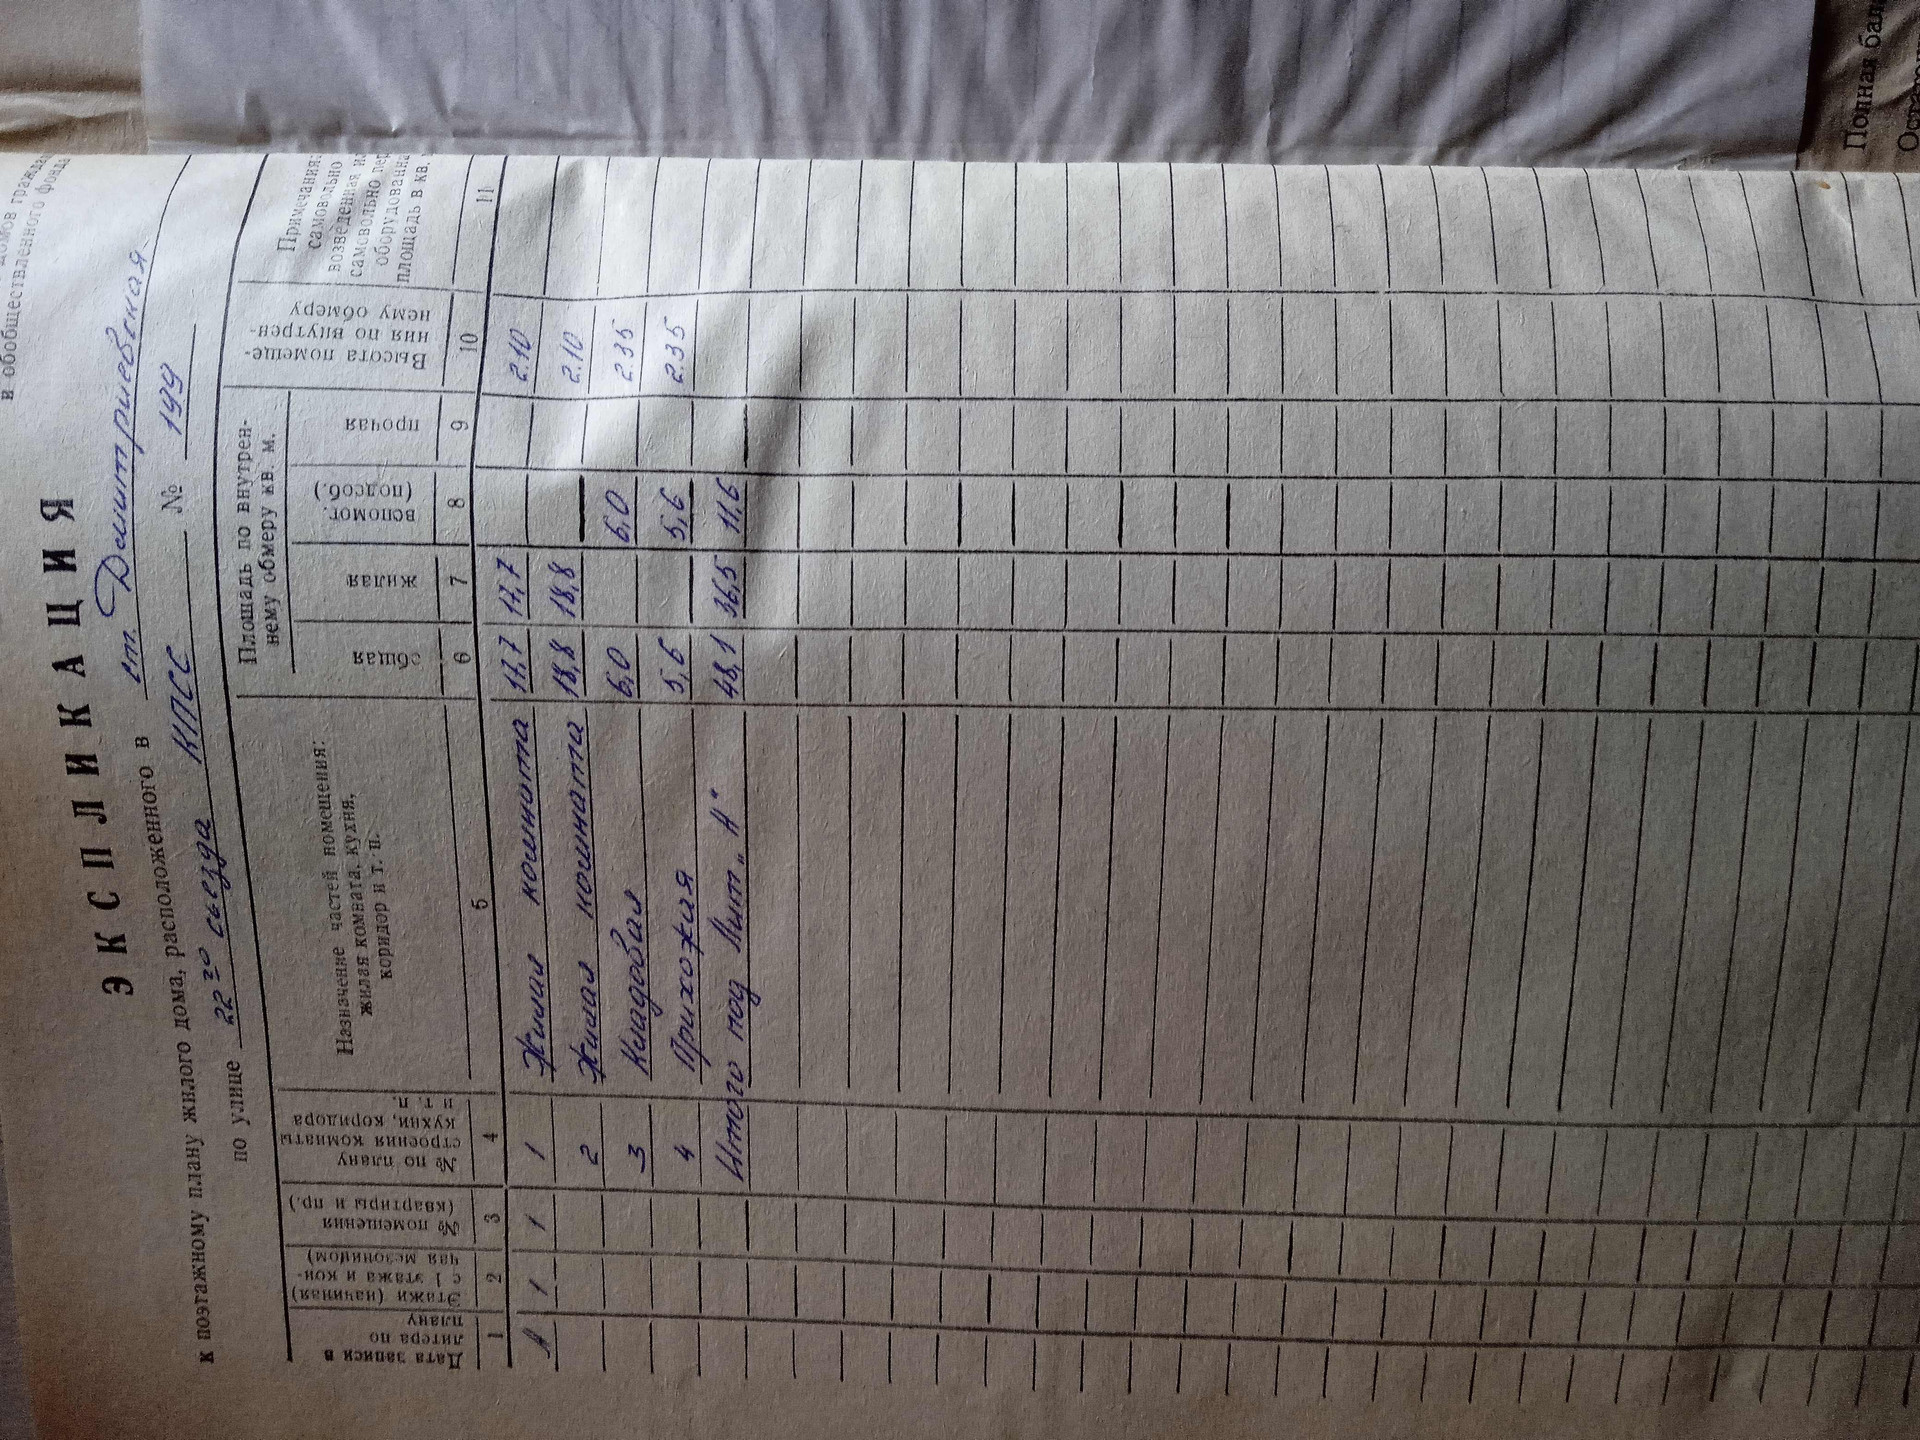 домов граждан
и обобществленного фонда
ЭКСПЛИКАЦИЯ
к поэтажному плану жилого дома, расположенного в ст. Дмитриевская
по улице 22го съезда КПСС № 199
Дата записи в литера по плану
Этажи (начиная с 1 этажа и кончая мезонином)
№ помещения (квартиры и пр.)
№ по плану строения комнаты кухни, коридора и т. п.
Назначение частей помещения: жилая комната, кухня, коридор и т. п.
Площадь по внутреннему обмеру кв. м.
общая
жилая
вспомог. (подсоб.)
прочая
Высота помещения по внутреннему обмеру
Примечания: самовольно возведенная и самовольно пер оборудованна площадь в кв.
1 2 3 4 5 6 7 8 9 10 11
А 1 1 1 Жилая комната 17,7 17,7 2.10
2 Жилая комната 18,8 18,8 2.10
3 Кладовая 6,0 6,0 2.35
4 Прихожая 5,6 5,6 2.35
Итого под Лит „А" 48,1 36,5 11,6
Полная бал